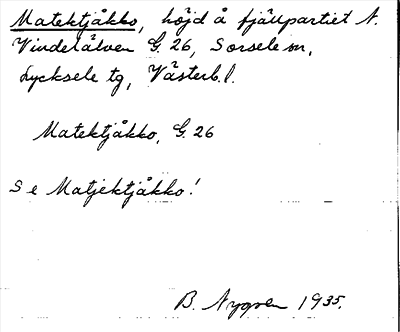 Matektjåkko, höjd å fjällpartiet N.
Vindelälven G. 26, Sorsele sn,
Lycksele tg, Västerb. l.
Matektjåkko, G. 26
Se Matjektjåkko!
B. Nygren 1935.